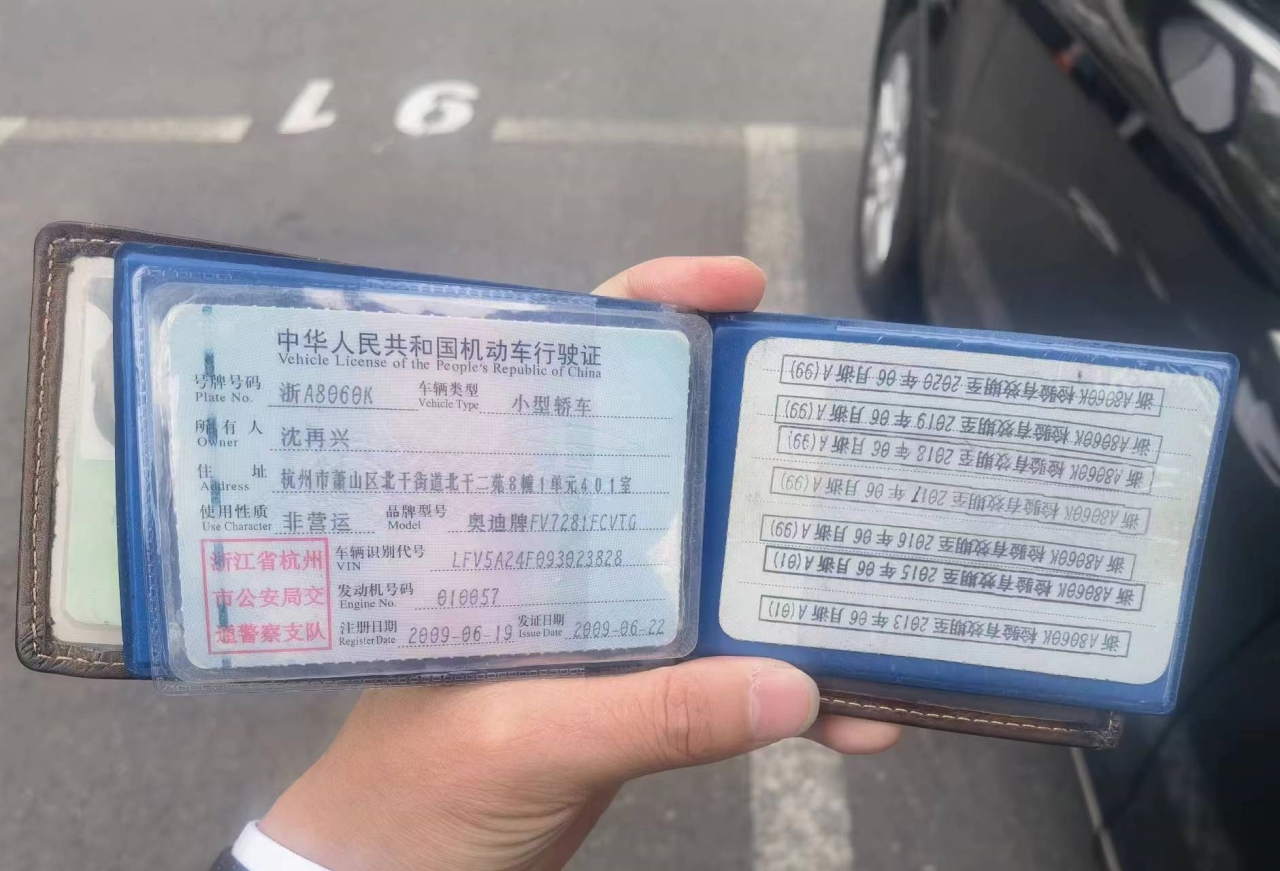 16
中华人民共和国机动车行驶证
Vehicle License of the People's Republic of China
号牌号码 浙A8060K 车辆类型 小型轿车
Plate No. Vehicle Type
所有人 沈再兴
Owner
住址 杭州市萧山区北干街道北干二苑8幢1单元401室
Address
使用性质 非营运 品牌型号 奥迪牌FV7281FCVTG
Use Character Model
浙江省杭州
市公安局交
通警察支队
车辆识别代号 LFV5A24F093023828
VIN
发动机号码 010057
Engine No.
注册日期 2009-06-19 发证日期 2009-06-22
Register Date Issue Date
浙A8060K 检验有效期至 2013 年 06 月浙A(01)
浙A8060K 检验有效期至 2015 年 06 月浙A(01)
浙A8060K 检验有效期至 2016 年 06 月浙A(99)
浙A8060K 检验有效期至 2017 年 06 月浙A(99)
浙A8060K 检验有效期至 2018 年 06 月浙A(99)
浙A8060K 检验有效期至 2019 年 06 月浙A(99)
浙A8060K 检验有效期至 2020 年 06 月浙A(99)